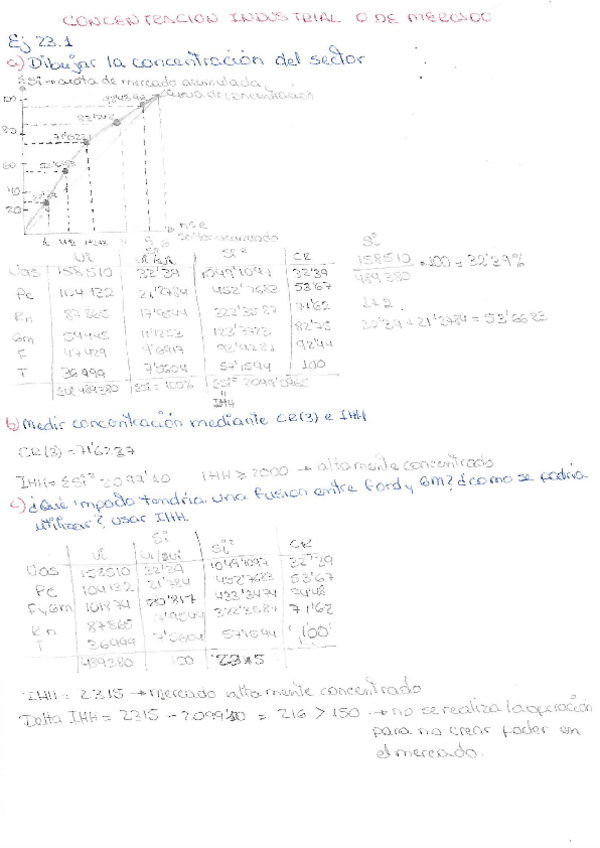 CONCENTRACION INDUSTRIAL O DE MERCADO
Ej 23.1
a) Dibujar la concentración del sector
ΣSi → cuota de mercado acumulada
Curva de concentración
100
80
60
40
20
nº de
sector acumulado
Ui Si Si² CR
Uas 158510 32'39 1049'1097 32'39
Pe 104132 21'2784 452'7683 53'67
Rn 87865 17'9544 322'3587 71'62
Gm 54445 11'1253 123'7723 82'75
F 47429 9'6917 93'9281 92'44
T 36999 7'5604 57'1594 100
ΣUi 489380 ΣSi = 100% ΣSi² 2099'0965
IHH
Si
158510 / 489380 · 100 = 32'39%
1+2
32'39 + 21'2784 = 53'6683
b) Medir concentración mediante CR(3) e IHH
CR(3) = 71'6237
IHH = ΣSi² 2099'10 IHH ≥ 2000 → altamente concentrado
c) ¿Qué impacto tendría una fusion entre Ford y GM? ¿como se podria
utilizar? usar IHH.
Ui Si Ui/ΣUi Si² CR
Uas 158510 32'39 1049'1097 32'39
Pe 104132 21'784 452'7683 53'67
F y Gm 101874 20'817 433'3474
Rn 87865 17'9544 322'3587 71'62
T 36999 7'5604 57'1594 100
489380 100 2315
IHH = 2315 → Mercado altamente concentrado
Delta IHH = 2315 - 2099'10 = 216 > 150 → no se realiza la operación
para no crear poder en
el mercado.